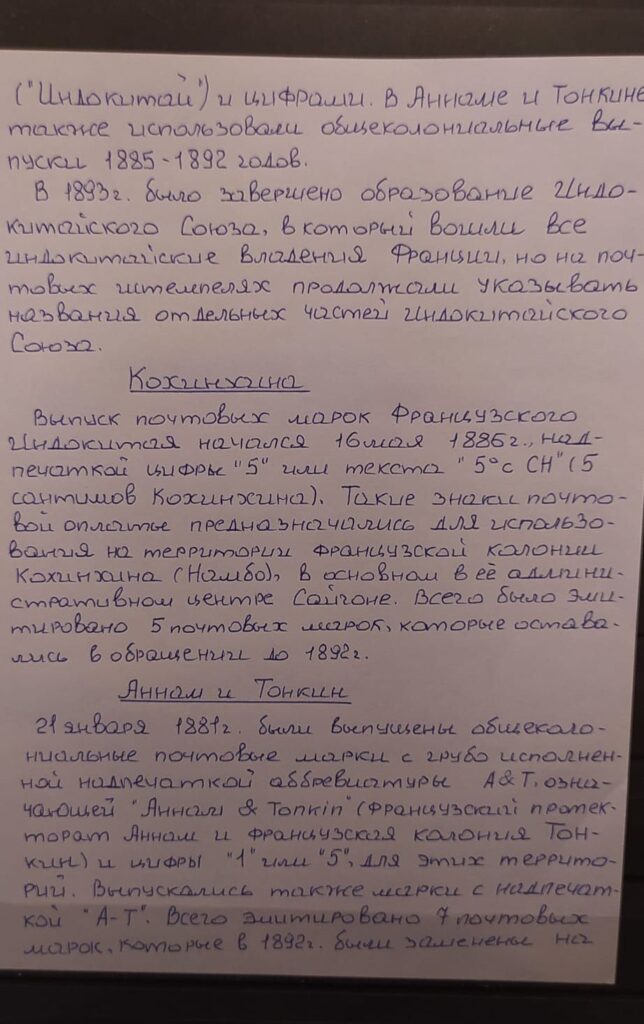 ("Индокитай") и цифрами. В Аннаме и Тонкине
также использовали общеколониальные вы-
пуски 1885-1892 годов.
В 1893г. было завершено образование Индо-
китайского Союза, в который вошли все
индокитайские владения Франции, но на поч-
товых штемпелях продолжали указывать
названия отдельных частей Индокитайского
Союза.
Кохинхина
Выпуск почтовых марок Французского
Индокитая начался 16 мая 1886г., над-
печаткой цифры "5" или текста "5° с CH" (5
сантимов Кохинхина). Такие знаки почто-
вой оплаты предназначались для использо-
вания на территории французской колонии
Кохинхина (Намбо), в основном в её админи-
стративном центре Сайгоне. Всего было эми-
тировано 5 почтовых марок, которые остава-
лись в обращении до 1892г.
Аннам и Тонкин
21 января 1881г. были выпущены общеколо-
ниальные почтовые марки с грубо исполнен-
ной надпечаткой аббревиатуры A&T, озна-
чающей "Annam & Tonkin" (Французский протек-
торат Аннам и французская колония Тон-
кин) и цифры "1" или "5", для этих террито-
рий. Выпускались также марки с надпечат-
кой "A-T". Всего эмитировано 7 почтовых
марок, которые в 1892г. были заменены на